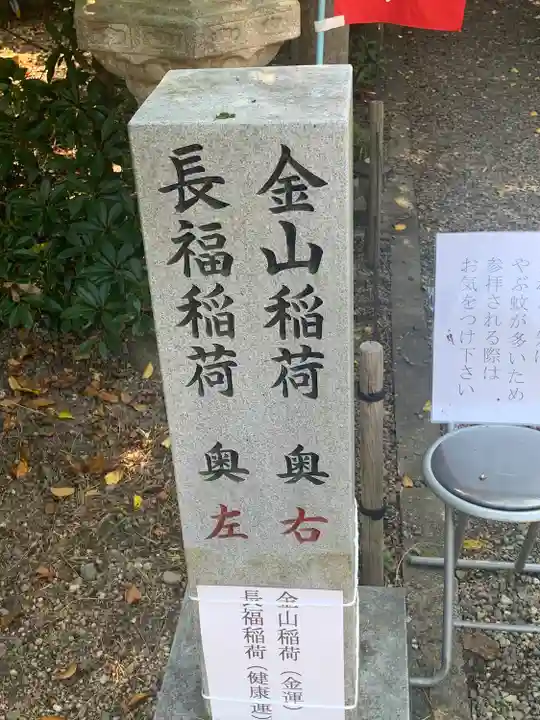 金山稲荷 奥 右
長福稲荷 奥 左
金山稲荷(金運)
長福稲荷(健康運)
やぶ蚊が多いため
参拝される際は
お気をつけ下さい